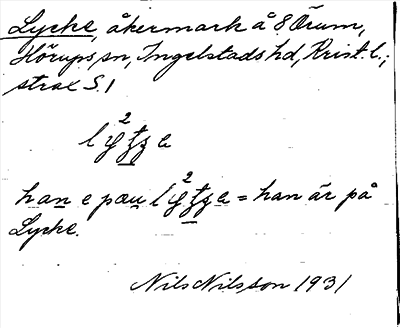 Lycke, åkermark å 8 Örum,
Hörups sn, Ingelstads hd, Krist. l.;
strax S. l
han e pau = han är på
Lycke.
Nils Nilsson 1931